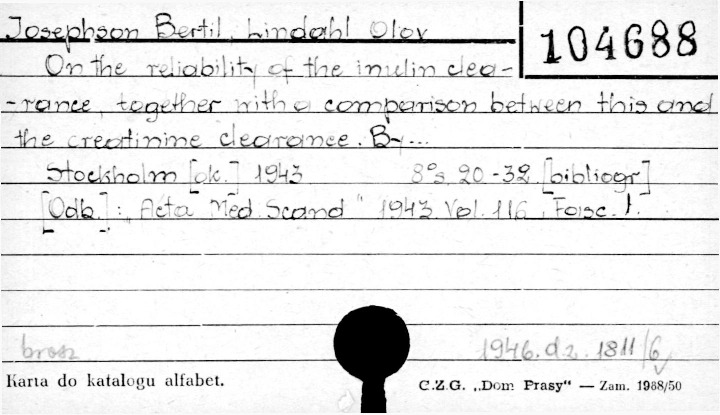 Josephson Bertil, Lindahl Olov
104688
On the reliability of the inulin clea-
-rance, together with a comparison between this and
the creatinine clearance. By...
Stockholm [ok.] 1943 8° s. 20-32 [bibliogr]
[Odb.]: „Acta Med. Scand" 1943 Vol. 116, Fasc. 1.
brosz 1946. dz. 1811/6
Karta do katalogu alfabet. C.Z.G. „Dom Prasy“ — Zam. 1988/50